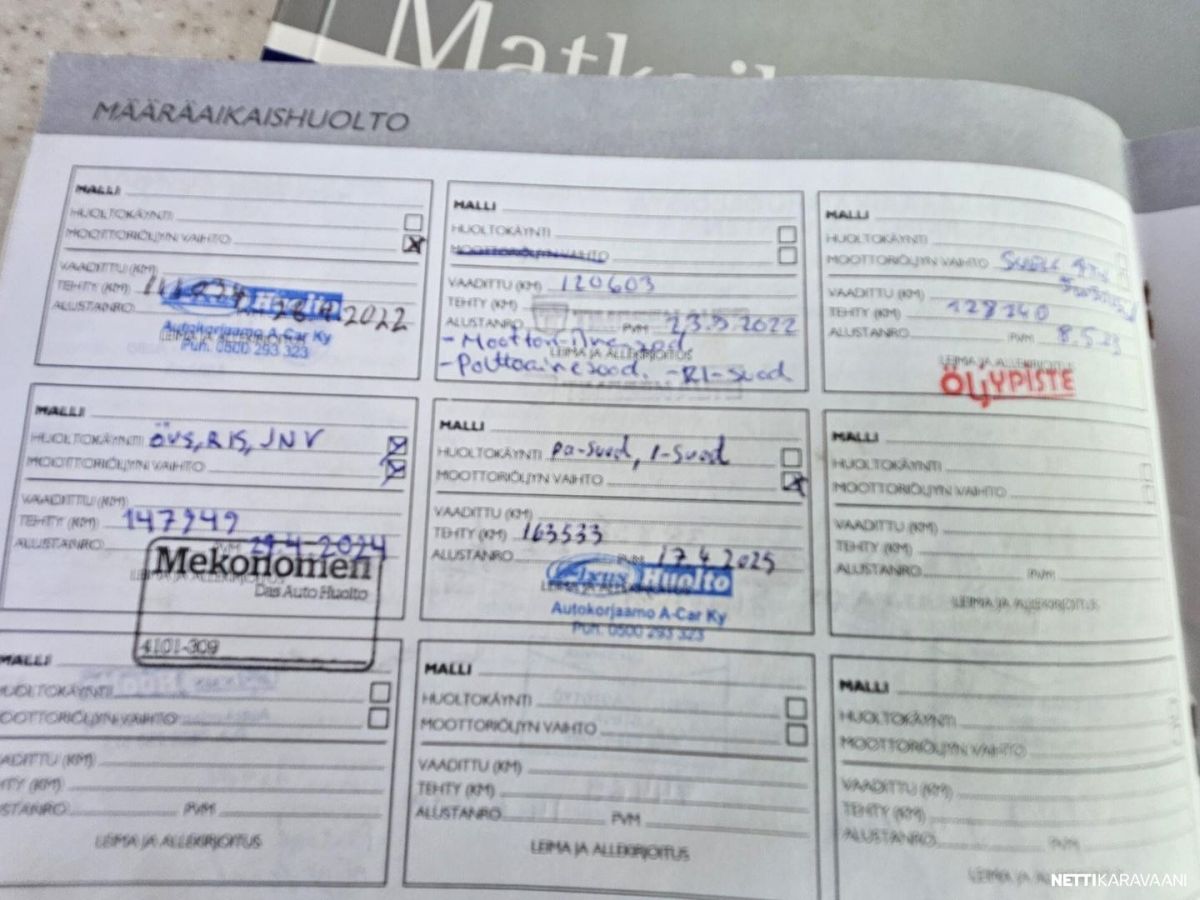 Matkail
MÄÄRÄAIKAISHUOLTO
MALLI
HUOLTOKÄYNTI
MOOTTORIÖLJYN VAIHTO
VAADITTU (KM)
TEHTY (KM)
Huolto
ALUSTANRO
28.4.2022
Autokorjaamo A-Car Ky
LEIMA JA ALLEKIRJOITUS
Puh. 0500 293 323
MALLI
HUOLTOKÄYNTI
MOOTTORIÖLJYN VAIHTO
VAADITTU (KM) 120603
TEHTY (KM)
ALUSTANRO PVM 23.5 2022
- Moottori
LEIMA JA ALLEKIRJOITUS
- Polttoainesuod. - RI-suod
MALLI
HUOLTOKÄYNTI
MOOTTORIÖLJYN VAIHTO
VAADITTU (KM)
TEHTY (KM) 128140
ALUSTANRO PVM 8.5.23
LEIMA JA ALLEKIRJOITUS
ÖLJYPISTE
MALLI
HUOLTOKÄYNTI ÖVS, RIS, JNV
MOOTTORIÖLJYN VAIHTO
VAADITTU (KM)
TEHTY (KM) 147949
ALUSTANRO PVM 29.4-2024
Mekonomen
LEIMA JA ALLEKIRJOITUS
Das Auto Huolto
4101-309
MALLI
HUOLTOKÄYNTI pa-suod, i-suod
MOOTTORIÖLJYN VAIHTO
VAADITTU (KM)
TEHTY (KM) 163533
ALUSTANRO PVM 17.4 2025
Fixus Huolto
LEIMA JA ALLEKIRJOITUS
Autokorjaamo A-Car Ky
Puh. 0500 293 323
MALLI
HUOLTOKÄYNTI
MOOTTORIÖLJYN VAIHTO
VAADITTU (KM)
TEHTY (KM)
ALUSTANRO PVM
LEIMA JA ALLEKIRJOITUS
MALLI
HUOLTOKÄYNTI
MOOTTORIÖLJYN VAIHTO
VAADITTU (KM)
TEHTY (KM)
ALUSTANRO PVM
LEIMA JA ALLEKIRJOITUS
MALLI
HUOLTOKÄYNTI
MOOTTORIÖLJYN VAIHTO
VAADITTU (KM)
TEHTY (KM)
ALUSTANRO PVM
LEIMA JA ALLEKIRJOITUS
MALLI
HUOLTOKÄYNTI
MOOTTORIÖLJYN VAIHTO
VAADITTU (KM)
TEHTY (KM)
ALUSTANRO PVM
LEIMA JA ALLEKIRJOITUS
NETTIKARAVAANI